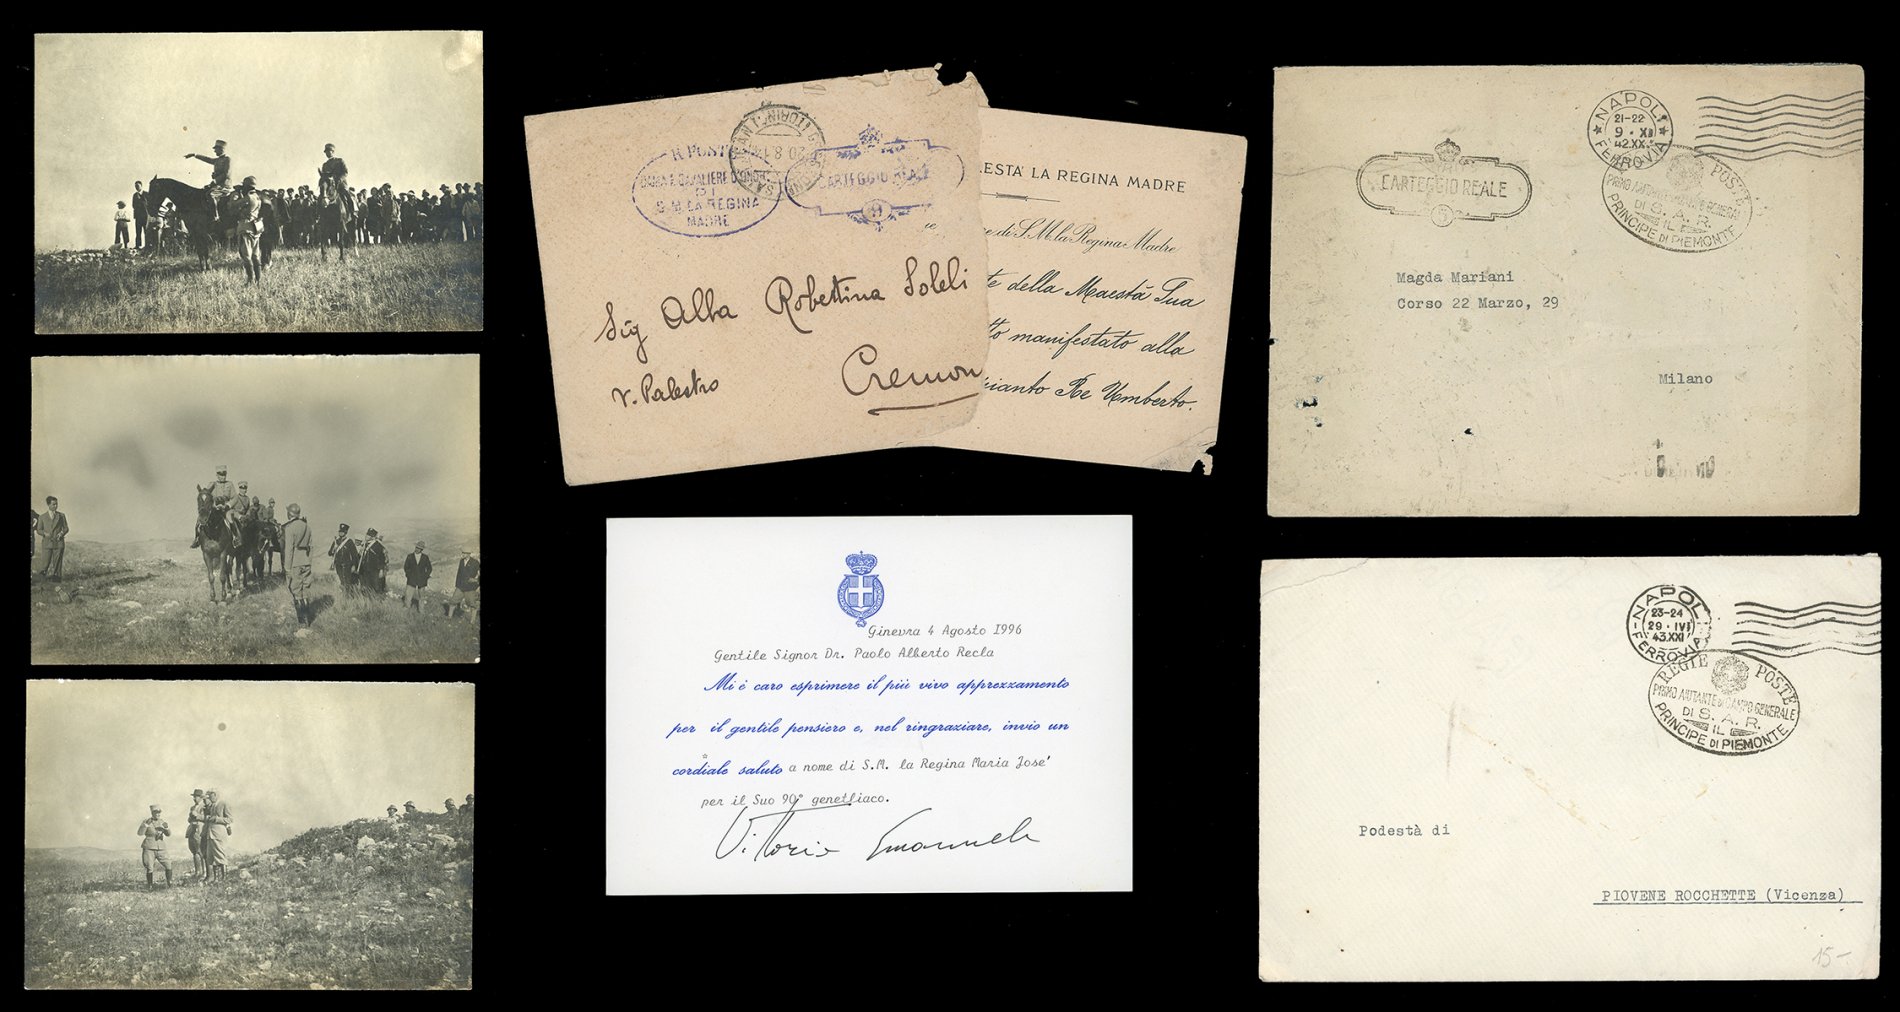 R. POSTE
DAMA E CAVALIERE D'ONORE
DI
S. M. LA REGINA
MADRE
CARTEGGIO REALE
Sig Alba Robettina Soleli
V. Palestro
Cremon
ESTÀ LA REGINA MADRE
re di S.M. la Regina Madre
te della Maestà Sua
tto manifestato alla
pianto Re Umberto.
Ginevra 4 Agosto 1996
Gentile Signor Dr. Paolo Alberto Recla
Mi è caro esprimere il più vivo apprezzamento
per il gentile pensiero e, nel ringraziare, invio un
cordiale saluto a nome di S.M. la Regina Maria Josè
per il Suo 90° genetliaco.
Vittorio Emanuele
NAPOLI
21-22
9 · XI
42.XX
FERROVIA
CARTEGGIO REALE
5
POSTE
PRIMO AIUTANTE DI CAMPO GENERALE
DI S. A. R.
IL
PRINCIPE DI PIEMONTE
Magda Mariani
Corso 22 Marzo, 29
Milano
NAPOLI
23-24
29 · IV
43.XXI
FERROVIA
REGIE POSTE
PRIMO AIUTANTE DI CAMPO GENERALE
DI S. A. R.
IL
PRINCIPE DI PIEMONTE
Podestà di
PIOVENE ROCCHETTE (Vicenza)
15-